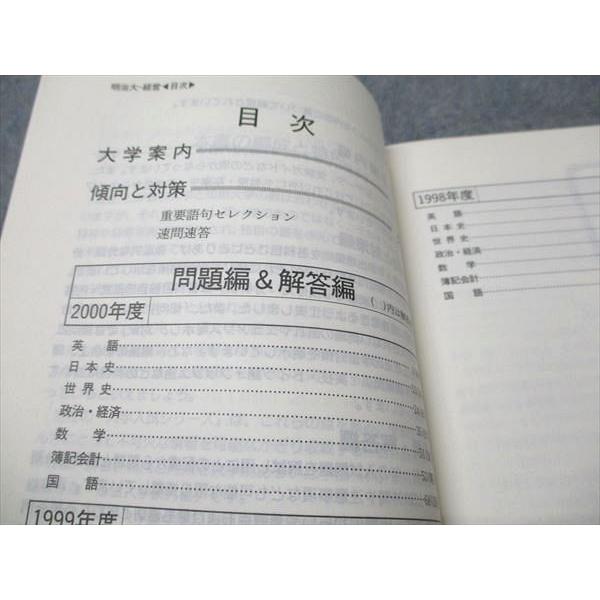 明治大-経営◀目次▶
目次
大学案内
傾向と対策
重要語句セレクション
速問速答
問題編&解答編
2000年度
英語
日本史
世界史
政治・経済
数学
簿記会計
国語
1999年度
1998年度
英語
日本史
世界史
政治・経済
数学
簿記会計
国語